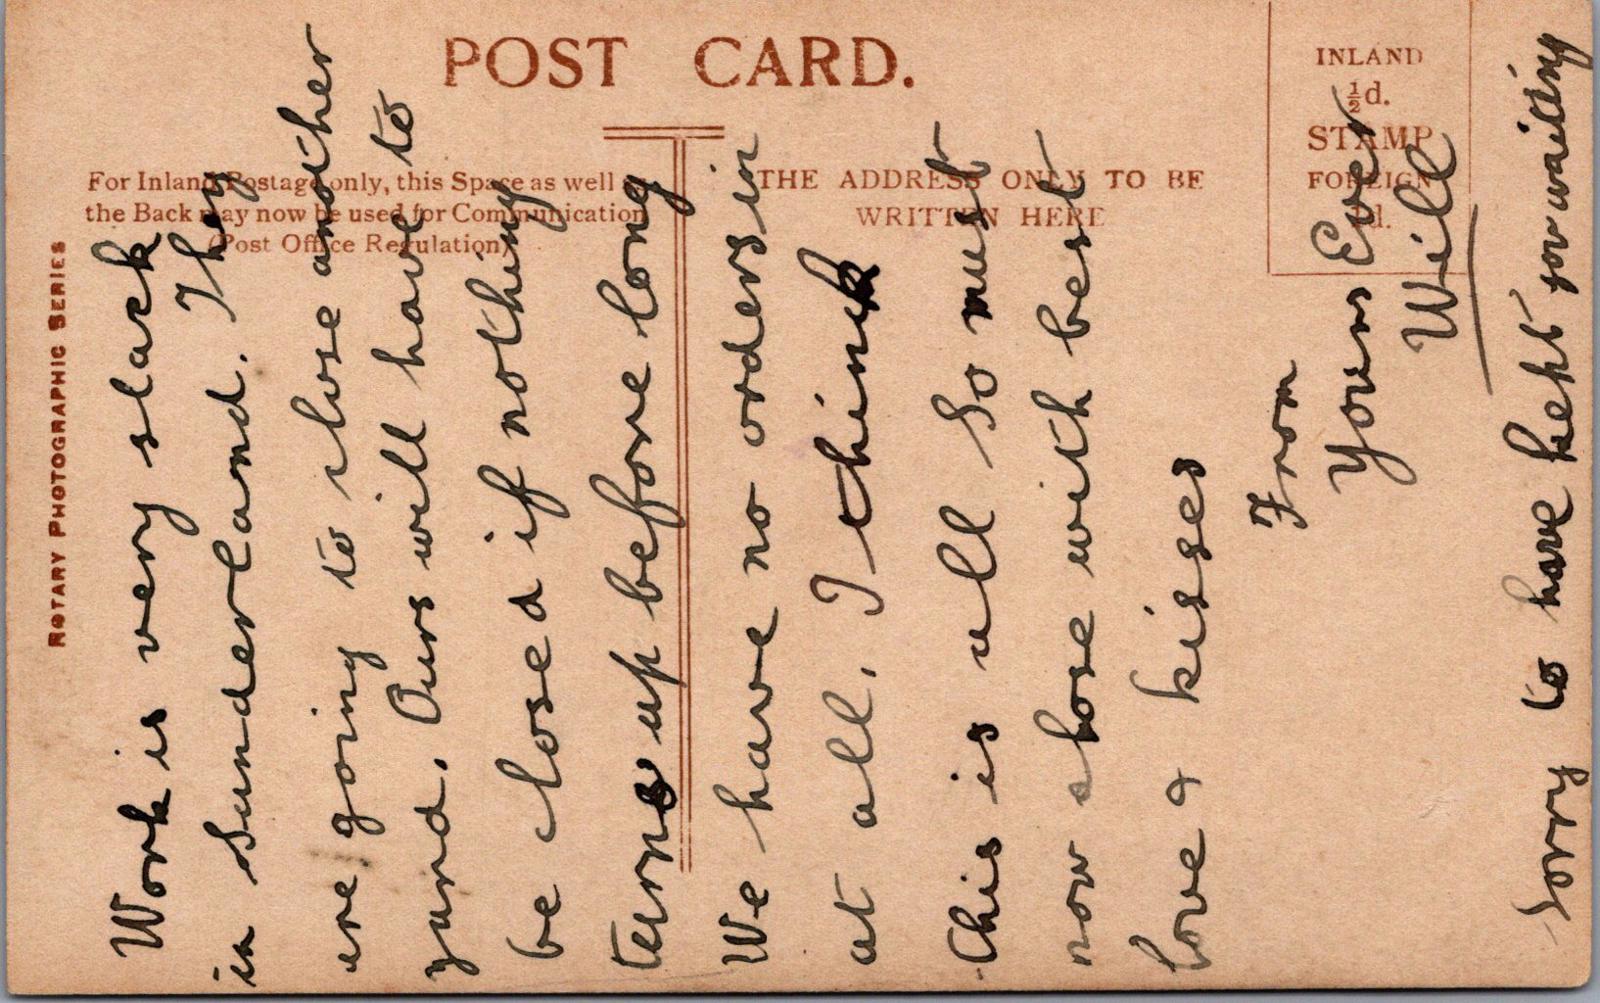 POST CARD.
For Inland Postage only, this Space as well as
the Back may now be used for Communication
(Post Office Regulation)
THE ADDRESS ONLY TO BE
WRITTEN HERE
INLAND
½d.
STAMP
FOREIGN
1d.
ROTARY PHOTOGRAPHIC SERIES
Work is very slack
in Sunderland. They
are going to close another
yard. Ours will have to
be closed if nothing
terns up before long
We have no orders in
at all. I think
this is all So must
now close with best
love & kisses
From
Yours Ever
Will
Sorry to have kept you waiting